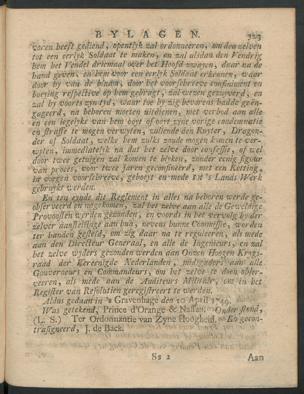 BYLAGEN. 323
voren heeft gediend, opentlyk zal ordonneeren, om den zelven
tot een eerlyk Soldaat te maken, en zal alsdan den Vendrig
hem het Vendel driemaal over het Hoofd zwayen, daar na de
hand geven, en hem voor een eerlyk Soldaat erkennen, waar
door
zal by voorts zyn tyd, waar toe hy zig bevorens hadde geën-
gageerd, na behoren moeten uitdienen, met verbod aan alle
en een iegelyk van hem ooyt of ooyt zyne vorige condemnatie
en straffe te mogen verwyten, zullende den Ruyter, Dragon-
der of Soldaat, welke hem zulks zoude mogen komen te ver-
wyten, immediatelyk na dat het zelve door confessie, of wel
door twee getuigen zal komen te blyken, zonder eenig figuur
van proces, voor twee Jaren geconfineerd, met een Ketting,
in voegen voorschreve, geboeyt en mede tot 's Lands Werk
gebruykt werden.
En ten eynde dit Reglement in alles na behoren werde ge-
observeerd en nagekomen, zal het zelve aan alle de Geweldige
Provoosten werden gezonden, en voorts in het vervolg by der
zelver aanstellinge aan hun, nevens hunne Commissie, werden
ter handen gesteld, om zig daar na te reguleeren, als mede
aan den Directeur Generaal, en alle de Ingenieurs, en zal
het zelve wyders gezonden werden aan Onzen Hoogen Krygs-
raad der Vereenigde Nederlanden, midsgaders aan alle
Gouverneurs en Commandeurs, om het zelve te doen obser-
veeren, als mede aan de Auditeurs Militair, om in het
Register van Resolutien geregistreert te worden.
Aldus gedaan in 's Gravenhage den 10 April 1749.
Was getekend, Prince d'Orange & Nassau. Onder stond,
(L. S.) Ter Ordonnantie van Zyne Hoogheid. En gecon-
trasigneerd, J. de Back.
Ss 2 Aan